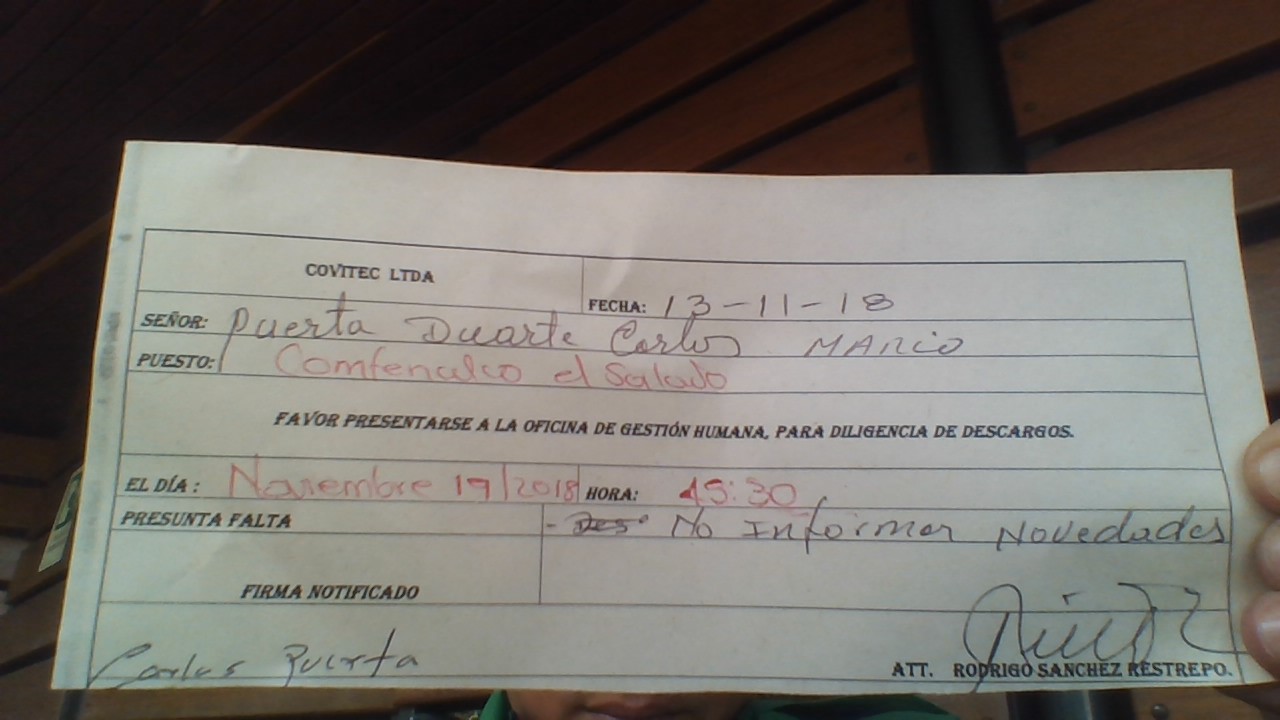 COVITEC LTDA
FECHA: 13-11-18
SEÑOR: Puerta Duarte Carlos MARIO
PUESTO: Comfenalco el Salado
FAVOR PRESENTARSE A LA OFICINA DE GESTIÓN HUMANA, PARA DILIGENCIA DE DESCARGOS.
EL DÍA: Noviembre 19/2018 HORA: 15:30
PRESUNTA FALTA - Des No Informar Novedades
FIRMA NOTIFICADO
Carlos Puerta
ATT. RODRIGO SANCHEZ RESTREPO.